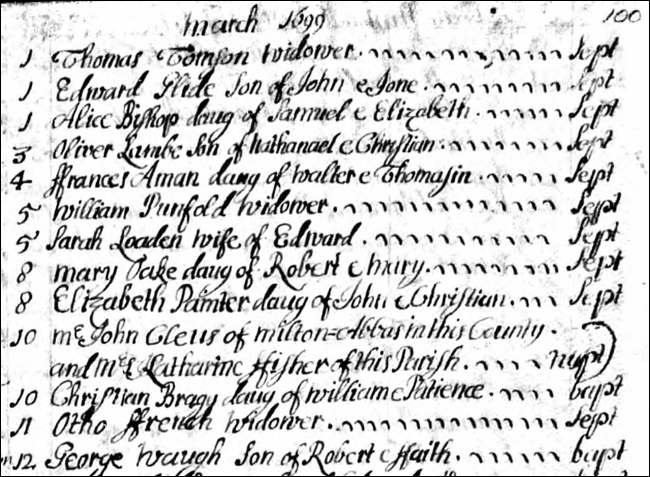 march 1699 100
1 Thomas Tomson widower. Sept
1 Edward Slide Son of John e Jone. Sept
1 Alice Bishop daug of Samuel e Elizabeth. Sept
3 Oliver Lambe Son of Nathanael e Christian. Sept
4 ffrances Aman daug of walter e Thomasin. Sept
5 william Punfold widower. Sept
5 Sarah Loaden wife of Edward. Sept
8 mary Jake daug of Robert e mary. Sept
8 Elizabeth Painter daug of John e Christian. Sept
10 mr John Cleus of milton=Abbas in this County.
and Mrs Katharine ffisher of this Parish. nupt
10 Christian Bragg daug of william e Patience. bapt
11 Otho ffrench widower. Sept
12 George waugh Son of Robert e ffaith. bapt